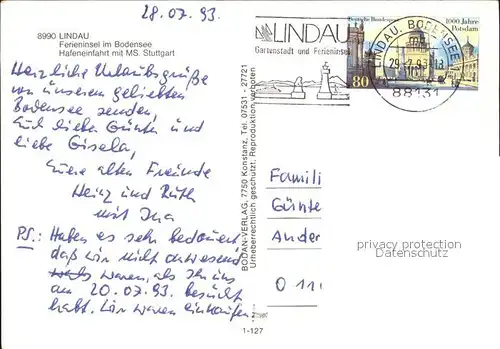 28.07.93.
8990 LINDAU
Ferieninsel im Bodensee
Hafeneinfahrt mit MS. Stuttgart
Herzliche Urlaubsgrüße
von unserem geliebten
Bodensee senden
Euch liebe Günter und
liebe Gisela,
Eure alten Freunde
Heinz und Ruth
mit Ina
PS.: Haben es sehr bedauert,
daß wir nicht anwesend
waren, als Ihr uns
am 20.07.93. besucht
habt. Wir waren einkaufen.
BODAN-VERLAG, 7750 Konstanz, Tel. 07531 - 27721
Urheberrechtlich geschützt. Reproduktion verboten
1-127
LINDAU
Gartenstadt und Ferieninsel
Deutsche Bundespost
1000 Jahre
Potsdam
80
LINDAU, BODENSEE
88131
Famili
Günte
Ander
0 11
privacy protection
Datenschutz